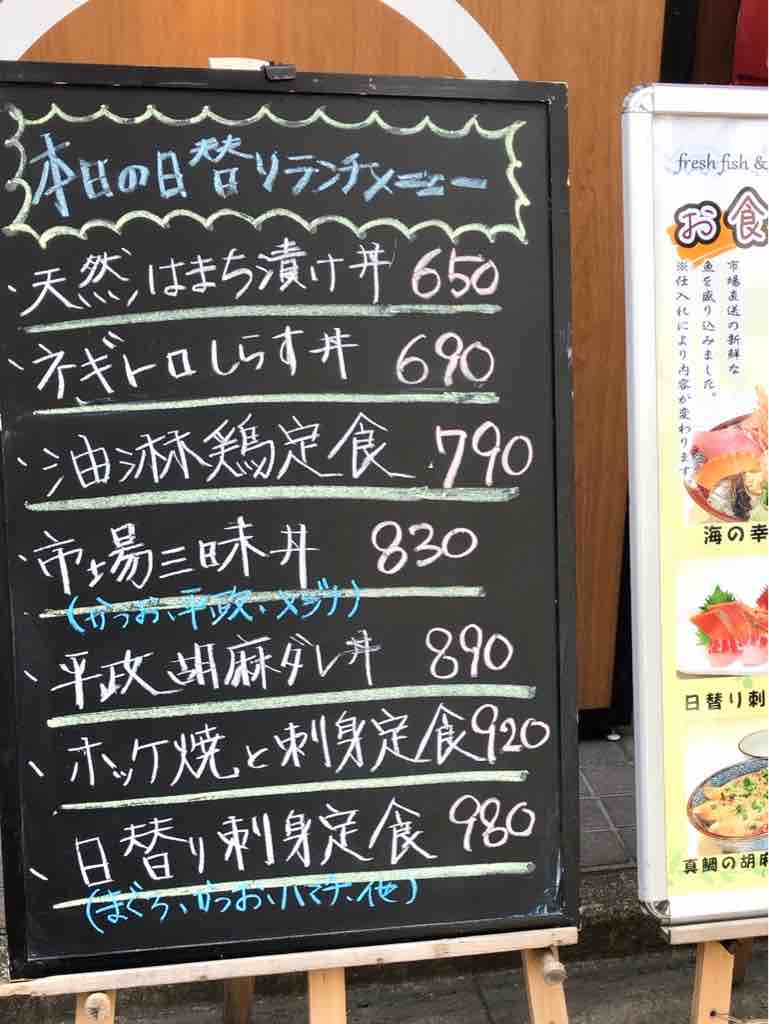 本日の日替りランチメニュー
天然はまち漬け丼 650
ネギトロしらす丼 690
油淋鶏定食 790
市場三昧丼 830
(かつお、平政、メジナ)
平政胡麻ダレ丼 890
ホッケ焼と刺身定食 920
日替り刺身定食 980
(まぐろ、かつお、ハマチ、他)
fresh fish &
お食
市場直送の新鮮な
魚を盛り込みました。
※仕入れにより内容が変わります
海の幸
日替り刺
真鯛の胡麻